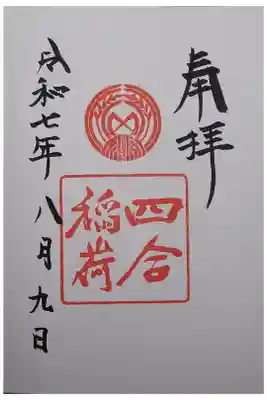 奉拝
四合
稲荷
令和七年八月九日